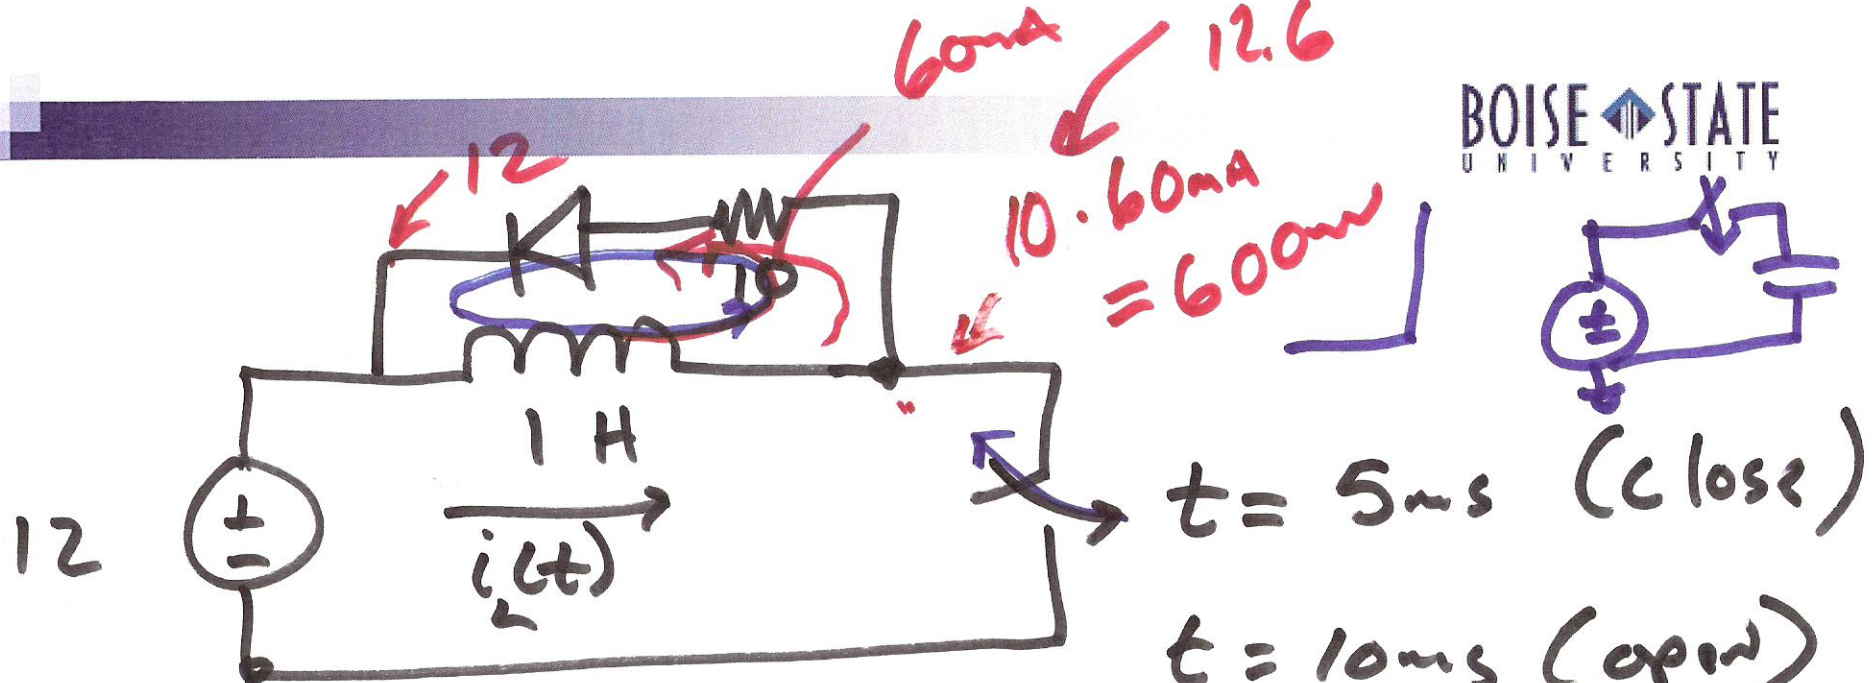 60mA
12.6
BOISE STATE
UNIVERSITY
12
10 · 60mA
= 600mV
10
1 H
12
i_L(t)
t = 5ms (close)
t = 10ms (open)